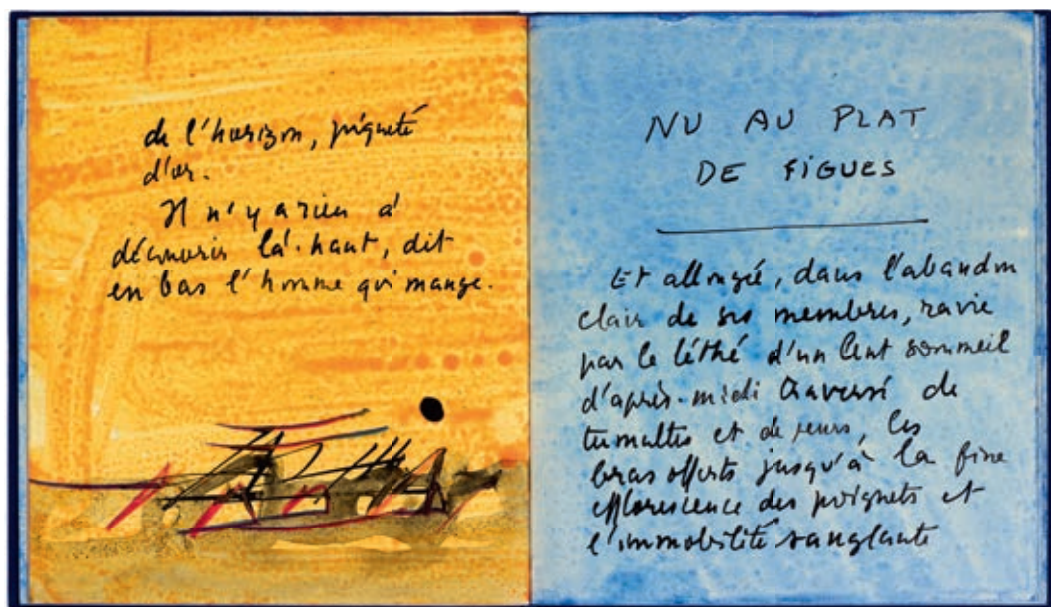 de l'horizon, piqueté
d'or.
Il n'y a rien à
découvrir là-haut, dit
en bas l'homme qui mange.
NU AU PLAT
DE FIGUES
Et allongée, dans l'abandon
clair de ses membres, ravie
par le léthé d'un lent sommeil
d'après-midi traversé de
tumultes et de peurs, les
bras offerts jusqu'à la fine
efflorescence des poignets et
l'immobilité sanglante